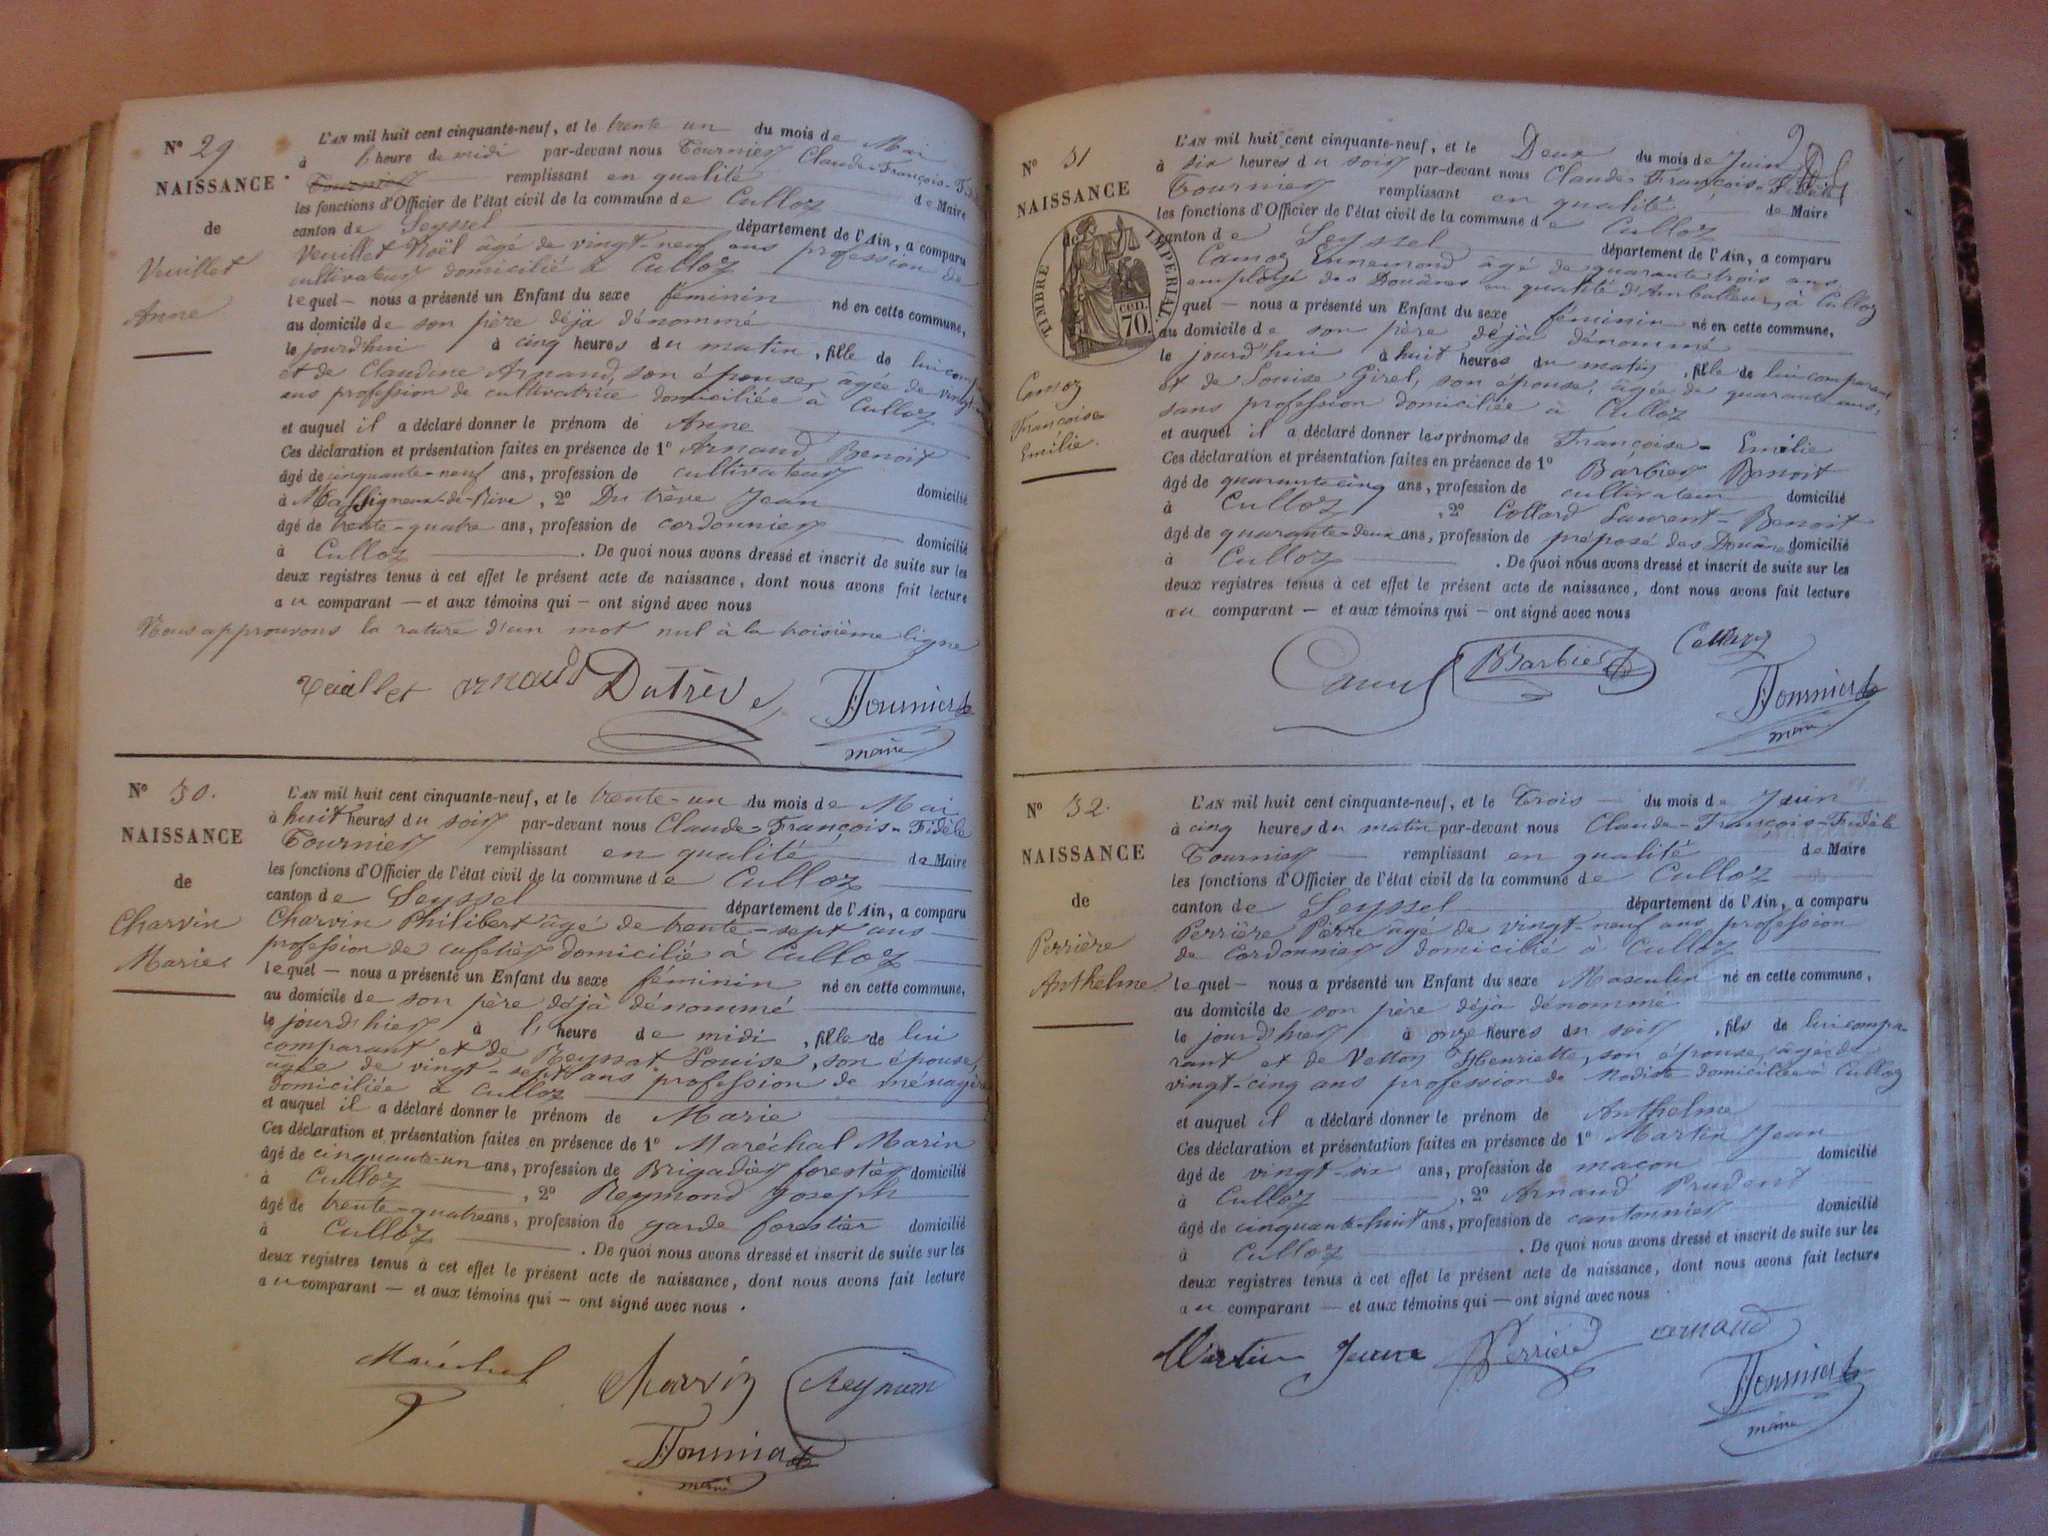 N° 29
NAISSANCE
de
Veuillet
Anne
L'AN mil huit cent cinquante-neuf, et le trente un du mois de Mai
à l'heure de midi par-devant nous Tournier Claude-François-
Tournier remplissant en qualité de Maire
les fonctions d'Officier de l'état civil de la commune de Culloz
canton de Seyssel département de l'Ain, a comparu
Veuillet Noël âgé de vingt-neuf ans profession de
cultivateur domicilié à Culloz
lequel — nous a présenté un Enfant du sexe féminin né en cette commune,
au domicile de son père déjà dénommé
le jourd'hui à cinq heures du matin, fille de lui
et de Claudine Arnaud, son épouse, âgée de
ans profession de cultivatrice domiciliée à Culloz
et auquel il a déclaré donner le prénom de Anne
Ces déclaration et présentation faites en présence de 1° Arnaud Benoit
âgé de cinquante-neuf ans, profession de cultivateur domicilié
à Massigneux-de-Rive, 2° Dutrève Jean
âgé de trente-quatre ans, profession de cordonnier domicilié
à Culloz. De quoi nous avons dressé et inscrit de suite sur les
deux registres tenus à cet effet le présent acte de naissance, dont nous avons fait lecture
au comparant — et aux témoins qui — ont signé avec nous
Nous approuvons la rature d'un mot nul à la troisième ligne
arnaud Dutrève Tournier
maire
N° 30.
NAISSANCE
de
Charvin
Marie
L'AN mil huit cent cinquante-neuf, et le trente-un du mois de Mai
à huit heures du soir par-devant nous Claude-François-Fidèle
Tournier remplissant en qualité de Maire
les fonctions d'Officier de l'état civil de la commune de Culloz
canton de Seyssel département de l'Ain, a comparu
Charvin Philibert âgé de trente-sept ans
profession de cafetier domicilié à Culloz
lequel — nous a présenté un Enfant du sexe féminin né en cette commune,
au domicile de son père déjà dénommé
le jourd'hier à l'heure de midi, fille de lui
comparant et de Reyssat Louise, son épouse,
âgée de vingt-sept ans profession de ménagère
domiciliée à Culloz
et auquel il a déclaré donner le prénom de Marie
Ces déclaration et présentation faites en présence de 1° Maréchal Marin
âgé de cinquante-un ans, profession de Brigadier forestier domicilié
à Culloz, 2° Reymond Joseph
âgé de trente-quatre ans, profession de garde forestier domicilié
à Culloz. De quoi nous avons dressé et inscrit de suite sur les
deux registres tenus à cet effet le présent acte de naissance, dont nous avons fait lecture
au comparant — et aux témoins qui — ont signé avec nous.
Maréchal Reymond
Tournier
maire
N° 31
NAISSANCE
de
TIMBRE IMPERIAL.
70. CEN.
Camoz
Françoise
Emilie.
L'AN mil huit cent cinquante-neuf, et le Deux du mois de Juin
à six heures du soir par-devant nous Claude-François-Fidèle
Tournier remplissant en qualité de Maire
les fonctions d'Officier de l'état civil de la commune de Culloz
canton de Seyssel département de l'Ain, a comparu
Camoz Ennemond âgé de quarante trois ans
employé des Douanes en qualité d'Emballeur, à Culloz
quel — nous a présenté un Enfant du sexe féminin né en cette commune,
au domicile de son père déjà dénommé
le jourd'hui à huit heures du matin, fille de lui comparant
et de Louise Girel, son épouse, âgée de quarante ans,
sans profession domiciliée à Culloz
et auquel il a déclaré donner les prénoms de Françoise-Emilie
Ces déclaration et présentation faites en présence de 1° Barbier Benoit
âgé de quarante cinq ans, profession de cultivateur domicilié
à Culloz, 2° Collard Laurent-Benoit
âgé de quarante-deux ans, profession de préposé des Douanes domicilié
à Culloz. De quoi nous avons dressé et inscrit de suite sur les
deux registres tenus à cet effet le présent acte de naissance, dont nous avons fait lecture
au comparant — et aux témoins qui — ont signé avec nous
Barbier
Tournier
maire
N° 32.
NAISSANCE
de
Perrière
Anthelme
L'AN mil huit cent cinquante-neuf, et le Trois du mois de Juin
à cinq heures du matin par-devant nous Claude-François-Fidèle
Tournier remplissant en qualité de Maire
les fonctions d'Officier de l'état civil de la commune de Culloz
canton de Seyssel département de l'Ain, a comparu
Perrière Pierre âgé de vingt-neuf ans profession
de Cordonnier domicilié à Culloz
lequel — nous a présenté un Enfant du sexe Masculin né en cette commune,
au domicile de son père déjà dénommé
le jourd'hier à onze heures du soir, fils de lui compa-
rant et de Henriette, son épouse, âgée de
vingt-cinq ans profession de Modiste domiciliée à Culloz
et auquel il a déclaré donner le prénom de Anthelme
Ces déclaration et présentation faites en présence de 1° Martin Jean
âgé de ans, profession de maçon domicilié
à Culloz, 2° Arnaud Prudent
âgé de cinquante-huit ans, profession de cantonnier domicilié
à Culloz. De quoi nous avons dressé et inscrit de suite sur les
deux registres tenus à cet effet le présent acte de naissance, dont nous avons fait lecture
au comparant — et aux témoins qui — ont signé avec nous
Martin Perrière arnaud
Tournier
maire